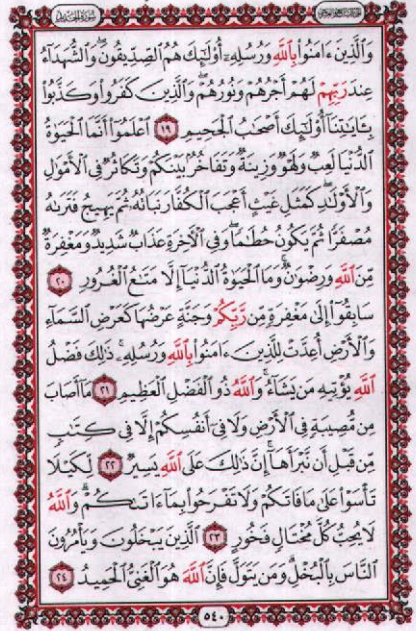 سورة الحديد
الجزء السابع والعشرون
وَٱلَّذِينَ ءَامَنُوا۟ بِٱللَّهِ وَرُسُلِهِۦٓ أُو۟لَٰٓئِكَ هُمُ ٱلصِّدِّيقُونَ ۖ وَٱلشُّهَدَآءُ
عِندَ رَبِّهِمْ لَهُمْ أَجْرُهُمْ وَنُورُهُمْ ۖ وَٱلَّذِينَ كَفَرُوا۟ وَكَذَّبُوا۟
بِـَٔايَٰتِنَآ أُو۟لَٰٓئِكَ أَصْحَٰبُ ٱلْجَحِيمِ ١٩ ٱعْلَمُوٓا۟ أَنَّمَا ٱلْحَيَوٰةُ
ٱلدُّنْيَا لَعِبٌ وَلَهْوٌ وَزِينَةٌ وَتَفَاخُرٌۢ بَيْنَكُمْ وَتَكَاثُرٌ فِى ٱلْأَمْوَٰلِ
وَٱلْأَوْلَٰدِ ۖ كَمَثَلِ غَيْثٍ أَعْجَبَ ٱلْكُفَّارَ نَبَاتُهُۥ ثُمَّ يَهِيجُ فَتَرَىٰهُ
مُصْفَرًّا ثُمَّ يَكُونُ حُطَٰمًا ۖ وَفِى ٱلْءَاخِرَةِ عَذَابٌ شَدِيدٌ وَمَغْفِرَةٌ
مِّنَ ٱللَّهِ وَرِضْوَٰنٌ ۚ وَمَا ٱلْحَيَوٰةُ ٱلدُّنْيَآ إِلَّا مَتَٰعُ ٱلْغُرُورِ ٢٠
سَابِقُوٓا۟ إِلَىٰ مَغْفِرَةٍ مِّن رَّبِّكُمْ وَجَنَّةٍ عَرْضُهَا كَعَرْضِ ٱلسَّمَآءِ
وَٱلْأَرْضِ أُعِدَّتْ لِلَّذِينَ ءَامَنُوا۟ بِٱللَّهِ وَرُسُلِهِۦ ۚ ذَٰلِكَ فَضْلُ
ٱللَّهِ يُؤْتِيهِ مَن يَشَآءُ ۚ وَٱللَّهُ ذُو ٱلْفَضْلِ ٱلْعَظِيمِ ٢١ مَآ أَصَابَ
مِن مُّصِيبَةٍ فِى ٱلْأَرْضِ وَلَا فِىٓ أَنفُسِكُمْ إِلَّا فِى كِتَٰبٍ
مِّن قَبْلِ أَن نَّبْرَأَهَآ ۚ إِنَّ ذَٰلِكَ عَلَى ٱللَّهِ يَسِيرٌ ٢٢ لِّكَيْلَا
تَأْسَوْا۟ عَلَىٰ مَا فَاتَكُمْ وَلَا تَفْرَحُوا۟ بِمَآ ءَاتَىٰكُمْ ۗ وَٱللَّهُ
لَا يُحِبُّ كُلَّ مُخْتَالٍ فَخُورٍ ٢٣ ٱلَّذِينَ يَبْخَلُونَ وَيَأْمُرُونَ
ٱلنَّاسَ بِٱلْبُخْلِ ۗ وَمَن يَتَوَلَّ فَإِنَّ ٱللَّهَ هُوَ ٱلْغَنِىُّ ٱلْحَمِيدُ ٢٤
٥٤٠